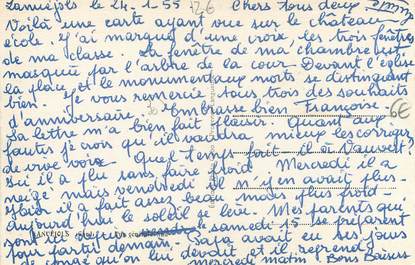 Lanuéjols le 24-1-55 Chers tous deux
Voilà une carte ayant vue sur le château
école. J'ai marqué d'une croix les trois fenêtres
de ma classe. La fenêtre de ma chambre est
masquée par l'arbre de la cour. Devant l'église
la place et le monument aux morts se distinguent
bien. Je vous remercie tous trois des souhaits
d'anniversaire. Embrasse bien Françoise.
Sa lettre m'a bien fait plaisir. Quant aux
fautes je crois qu'il vaudra mieux les corriger
de vive voix. Quel temps fait-il à Vauvert?
Ici il a plu sans faire froid Mercredi il a
neigé mais vendredi il n'y en avait plus.
il fait assez beau mais plus froid.
aujourd'hui le soleil se lève. Mes parents qui
sont depuis le samedi 15 se préparent
pour partir demain. Papa avait eu les jours
de congé qu'on lui devait et il reprend
mercredi matin Bons Baisers
26
6€
LANUEJOLS